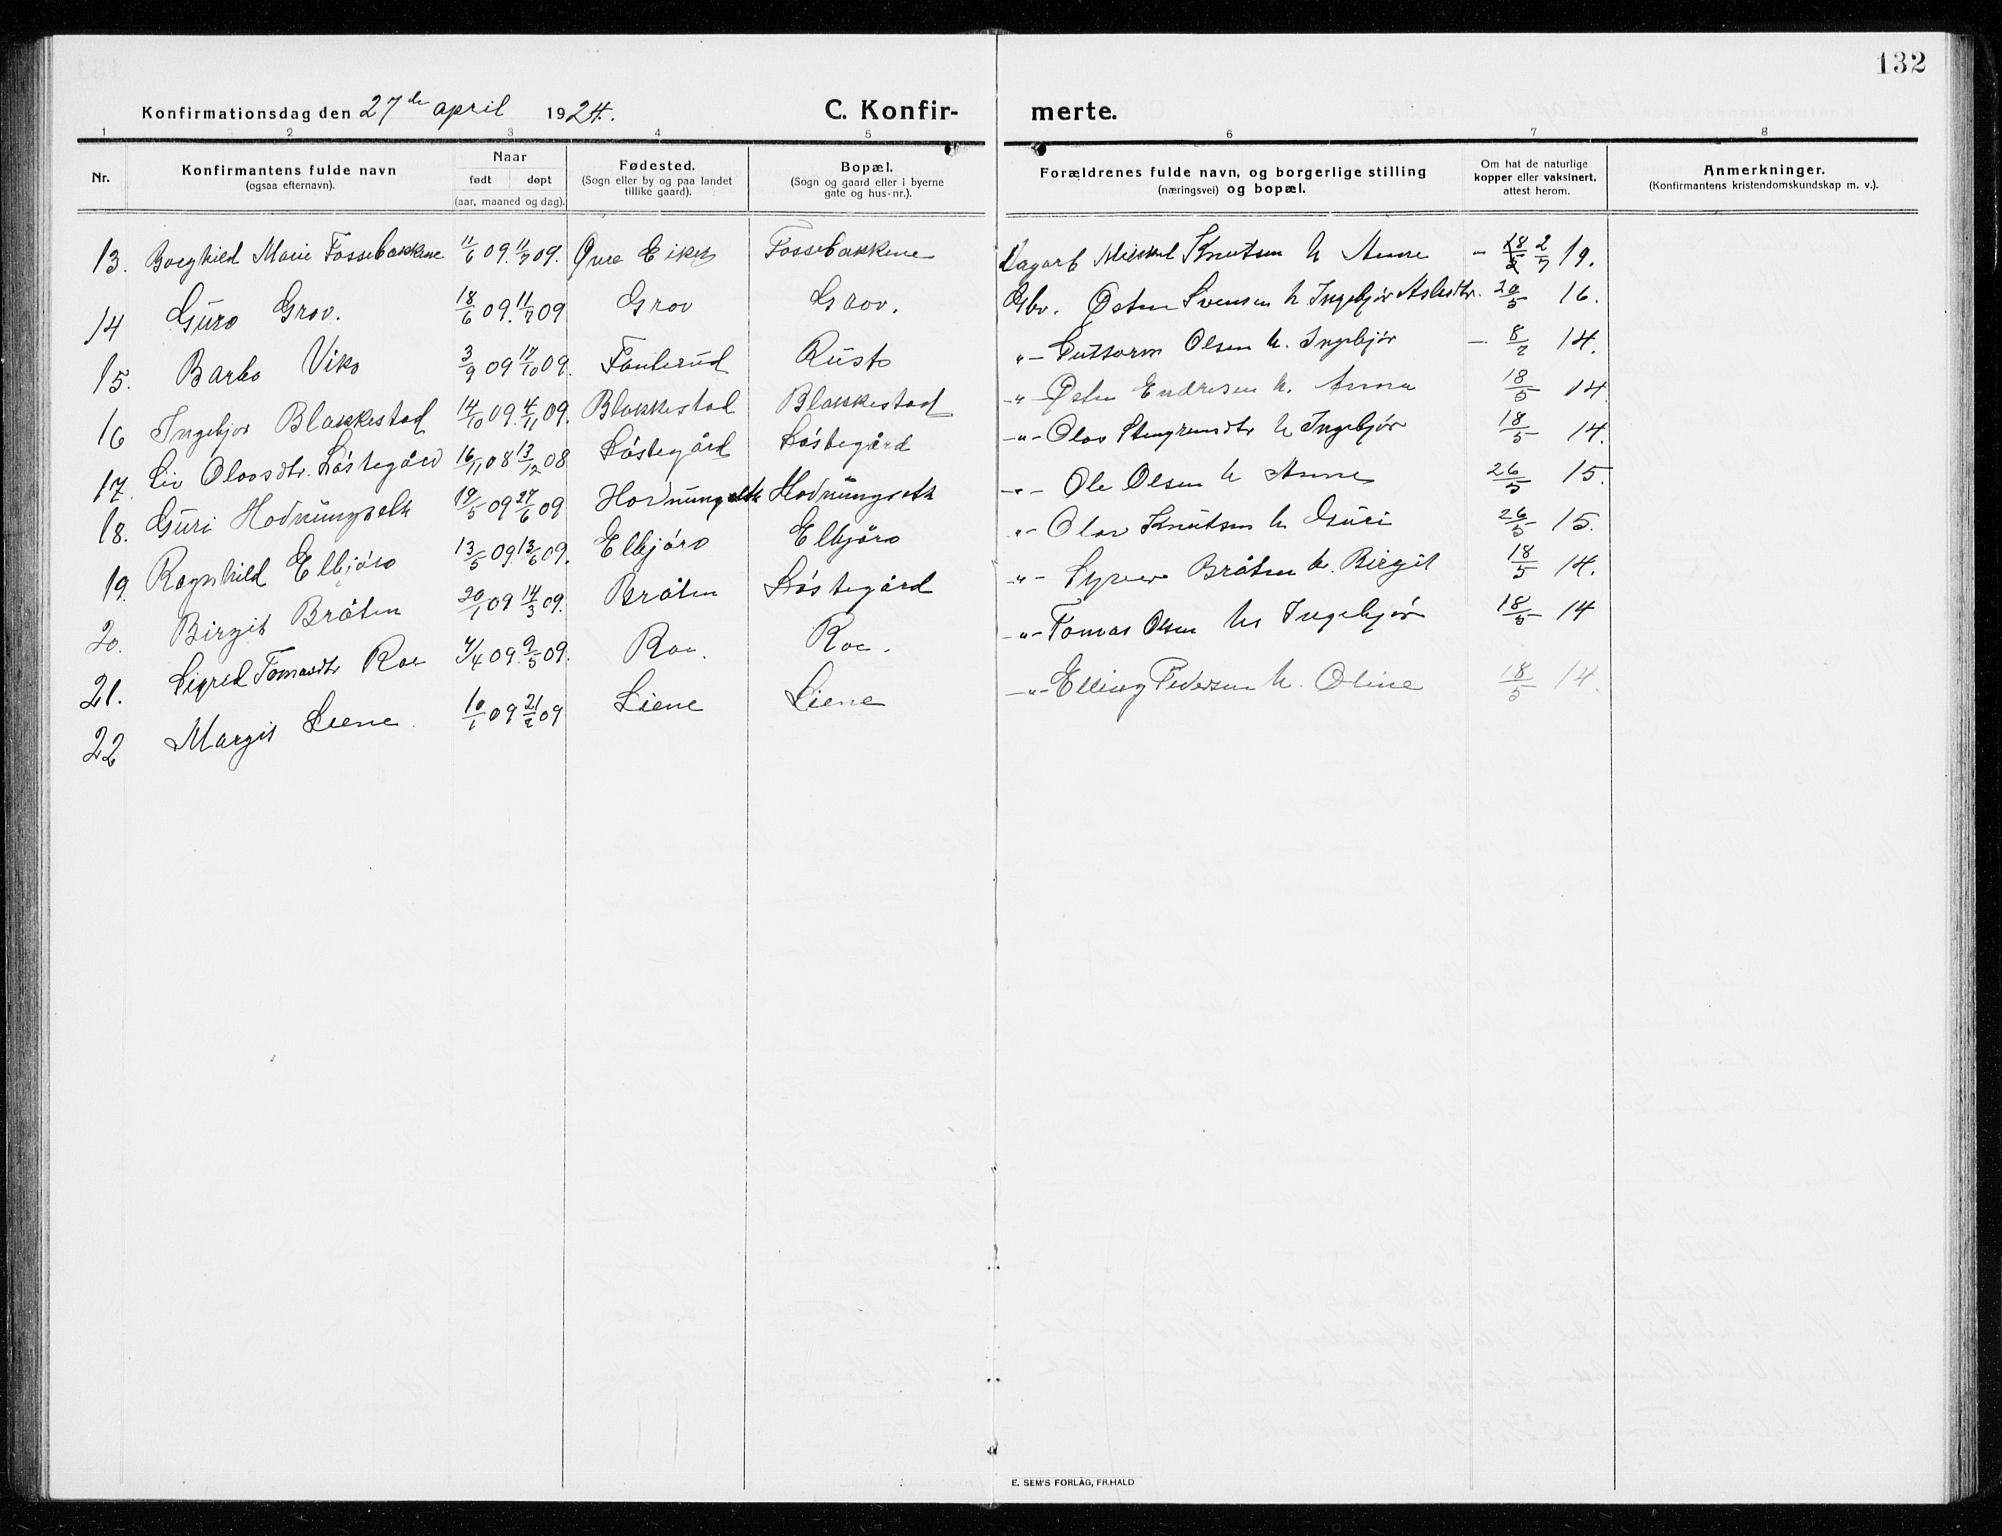 132
Konfirmationsdag den 27de april 1924. C. Konfir- merte.
1 2 3 4 5 6 7 8
Nr. Konfirmantens fulde navn (ogsaa efternavn). Naar født døpt (aar, maaned og dag). Fødested. (Sogn eller by og paa landet tillike gaard). Bopæl. (Sogn og gaard eller i byerne gate og hus-nr.). Forældrenes fulde navn, og borgerlige stilling (næringsvei) og bopæl. Om hat de naturlige kopper eller vaksinert, attest herom. Anmerkninger. (Konfirmantens kristendomskundskap m. v.).
13. Borghild Marie Fossebakkene 11/6 09. 11/7 09. Øvre Eiker Fossebakkene Dagarb. Knutsen h Anne - 2/7 19.
14 Guro Grov. 18/6 09. 11/7 09 Grov Grov. Gbr. Østen Svensen h Ingebjør Aslesdtr. 20/5 16.
15. Barbo Viko 3/9 09 17/10 09. Fonterud Rusto "- Guttorm Olsen h. Ingebjør - 8/7 14.
16 Ingebjør Blakkestad 14/10 09. 4/11 09. Blakkestad Blakkestad -"- Østen Endresen h. Anna 18/5 14
17. Liv Olavsdtr. Løstegård 16/11 08 13/12 08 Løstegård Løstegård -"- Olav h Ingebjør 18/5 14.
18. Guri Hovrungselk 19/5 09 27/6 09 -"- Ole Olsen h Anne 26/5 15.
19. Ragnhild Elbjøro 13/5 09. 13/6 09. Elbjøro Elbjøro "- Olav Knutsen h Guri 26/5 15.
20. Birgit Bråten 20/1 09 14/3 09. Bråten Løstegård "- Syver Bråten h. Birgit 18/5 14.
21. Sigrid Tomasdtr Roe 4/4 09. 9/5 09. Roe. Roe. -"- Tomas Olsen h Ingebjør 18/5 14
22 Margit Liene. 10/1 09 21/2 09 Liene Liene -"- Elling Pedersen h. Oline 18/5 14.
E. SEM'S FORLAG, FR.HALD